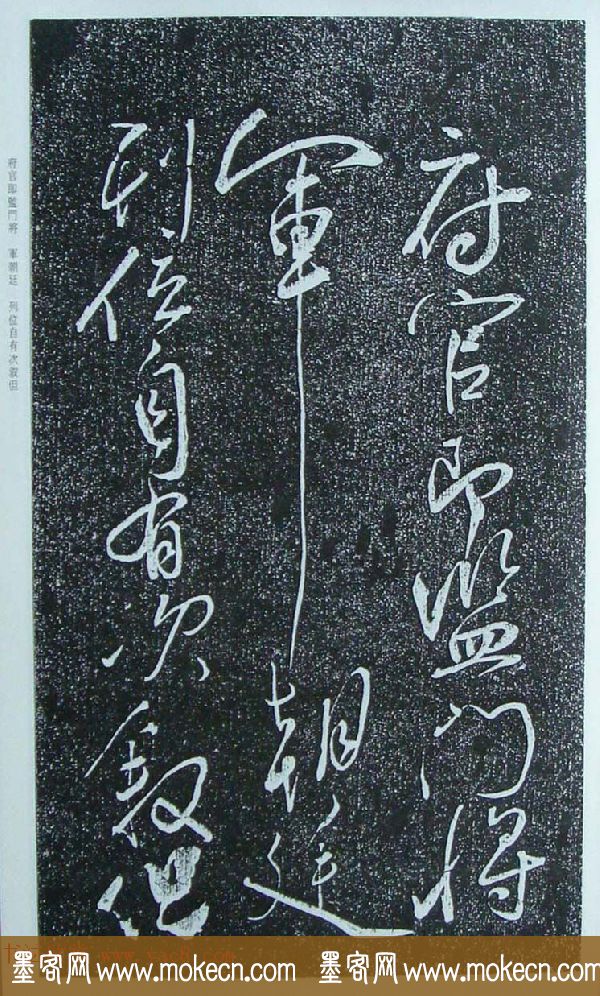 府官即監門將
軍朝廷
列位自有次叙但
府官即監門將 軍朝廷 列位自有次叙但
墨客网 www.mokecn.com 墨客网 www.mokecn.com